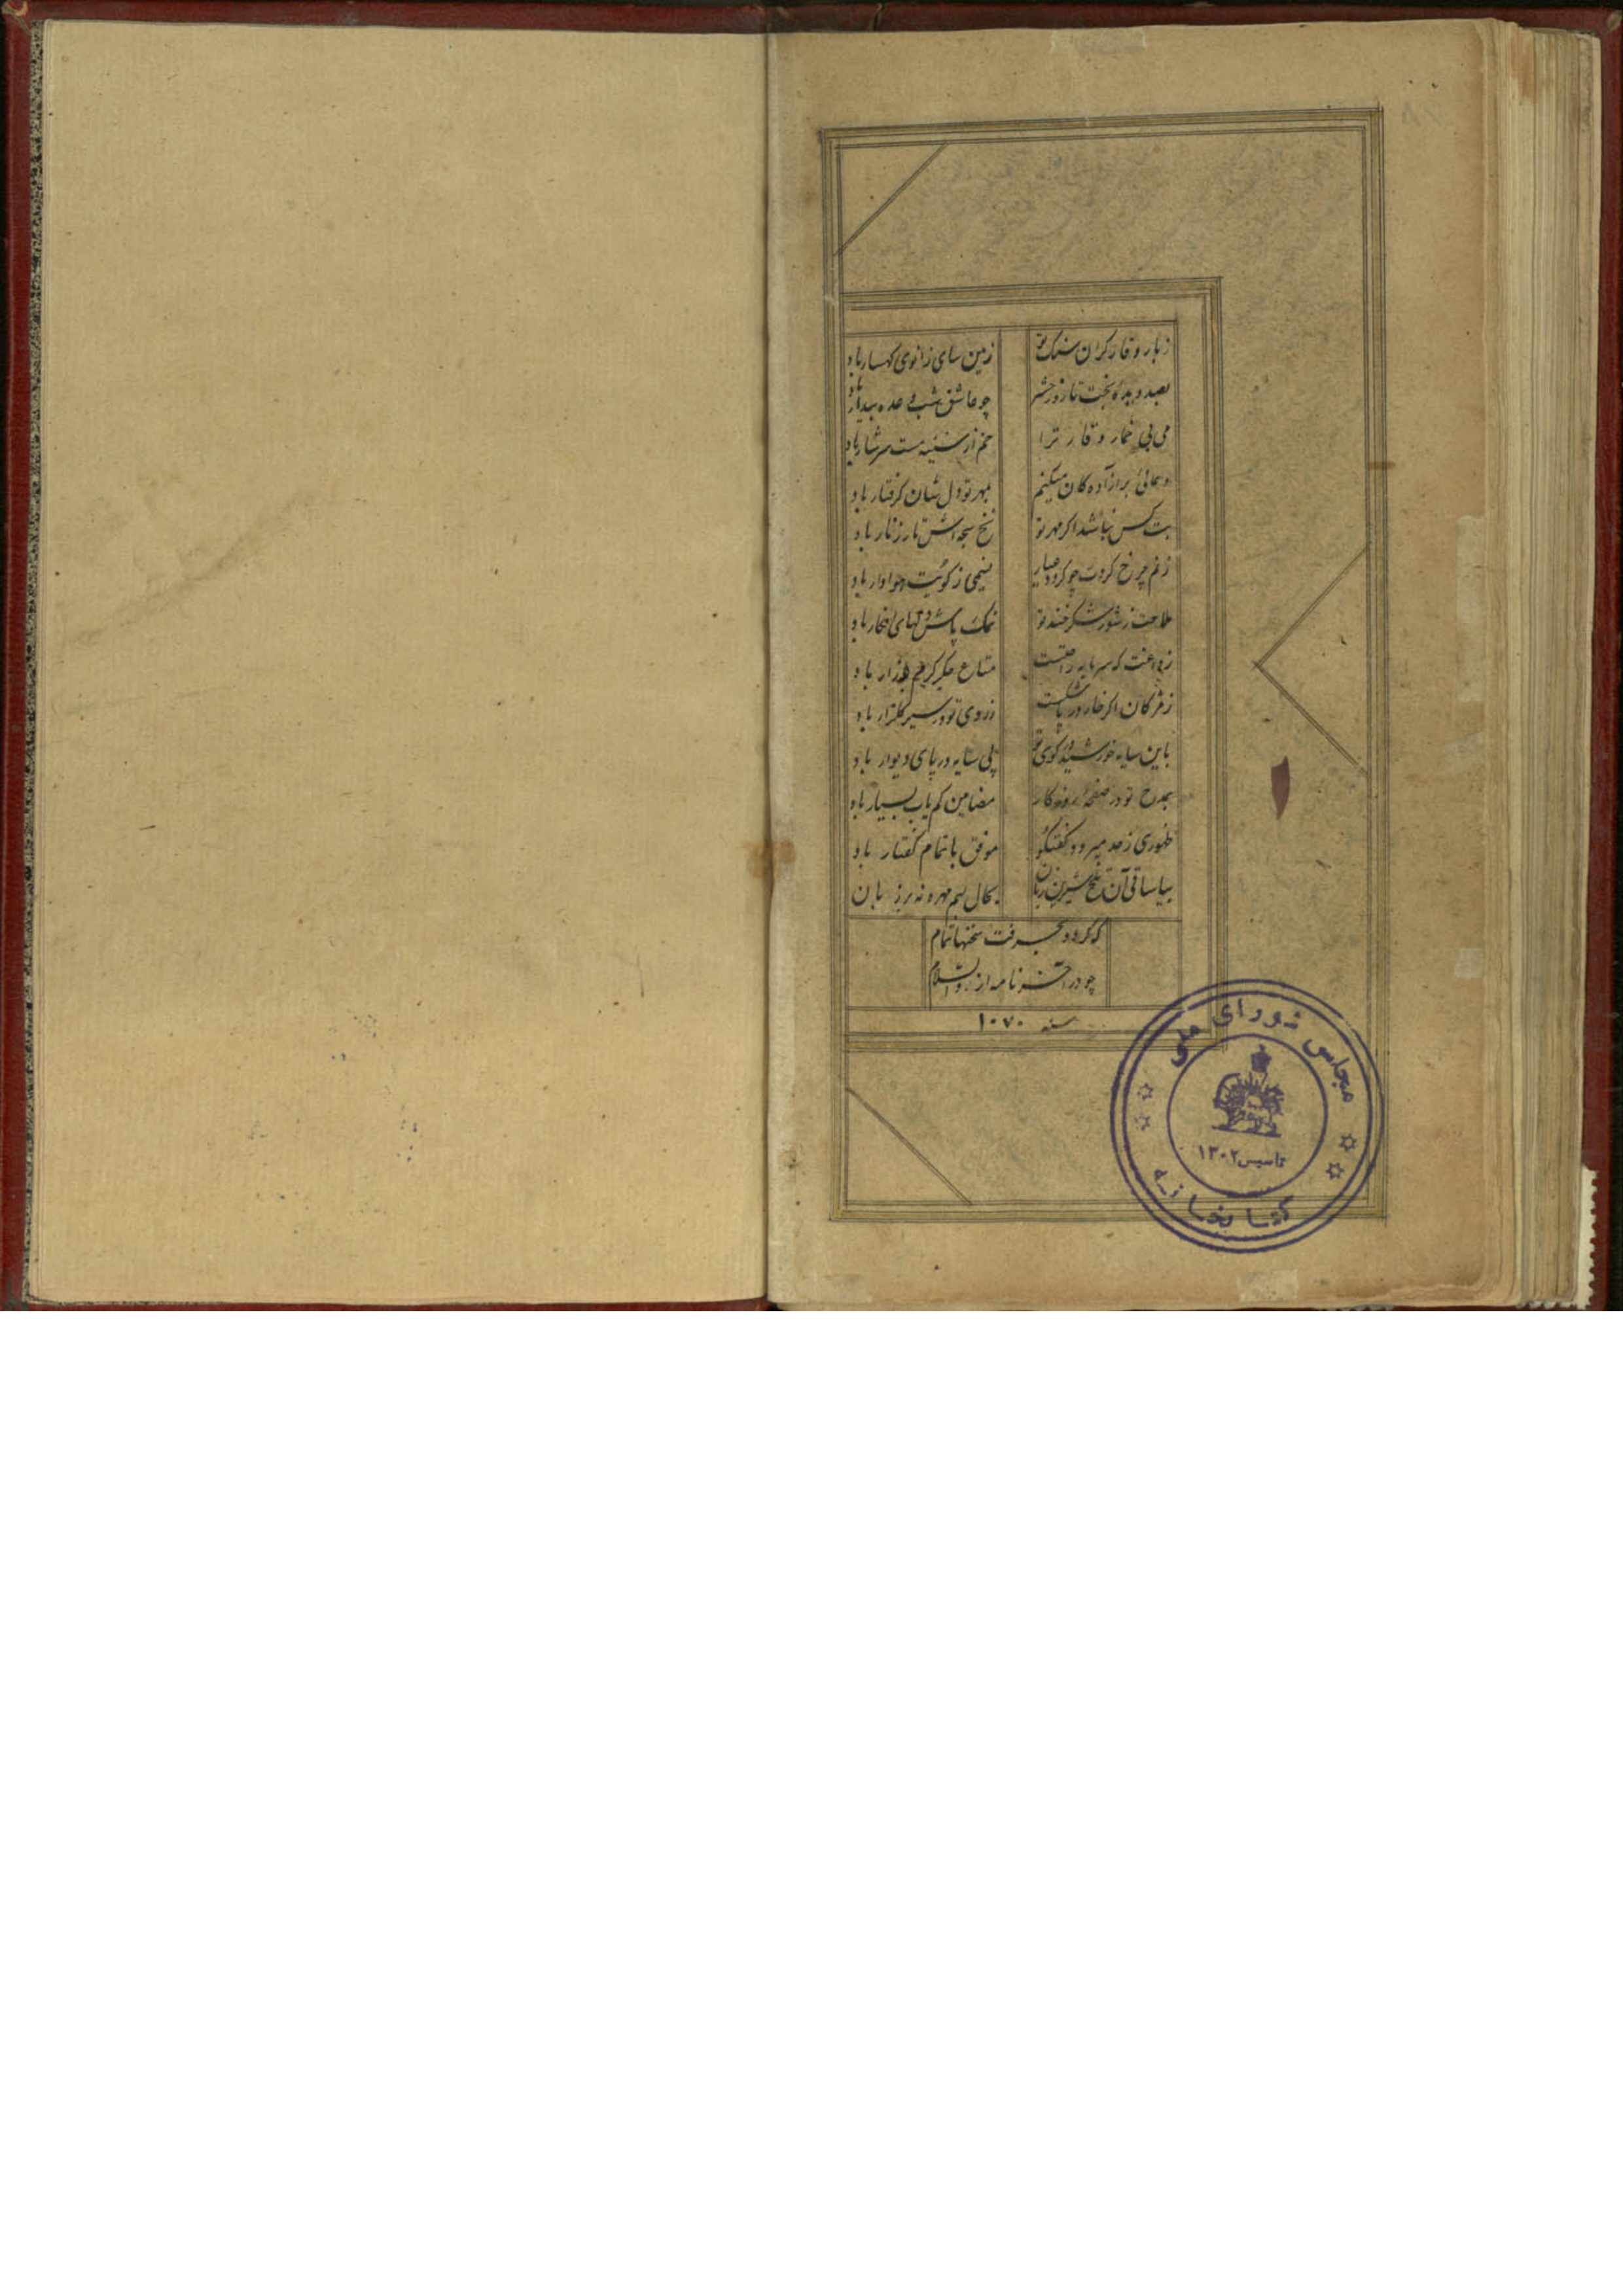 ز بار وقار گران سنگ تو زمین سای زانوی کهسار باد
بصد دیدهٔ بخت تا روز حشر چو عاشق شب وعده بیدار باد
می بی خمار وقار ترا خم از سینه مست سرشار باد
بر آزاده کان میکنم بمهر تو دل شان گرفتار باد
بت کس نباشد اگر مهر تو نخ سبحه اش تار زنار باد
ز غم چرخ گردت چو گردد غبار نسیمی ز کویت هوادار باد
ملاحت ز شور شکر خند تو نمک پاش دلهای افکار باد
که سرمایه راحتست متاع جگر گرم بازار باد
ز مژگان اگر خار در پا شکست ز روی تو در سیر گلزار باد
باین سایه خورشید در کوی تو پی سایه در پای دیوار باد
بمدح تو در صفحهٔ روزگار مضامین کم یاب بسیار باد
ظهوری ز حد میرود گفتگو موفق باتمام گفتار باد
بیا ساقی آن تلخ شیرین زبان بکا لبم مهر نه بر زبان
که گردد بحرفت سخنها تمام
چو در آخر نامه از رو السلام
سنه ۱۰۷۰
مجلس شورای ملی
تاسیس ۱۳۰۲
کتابخانه